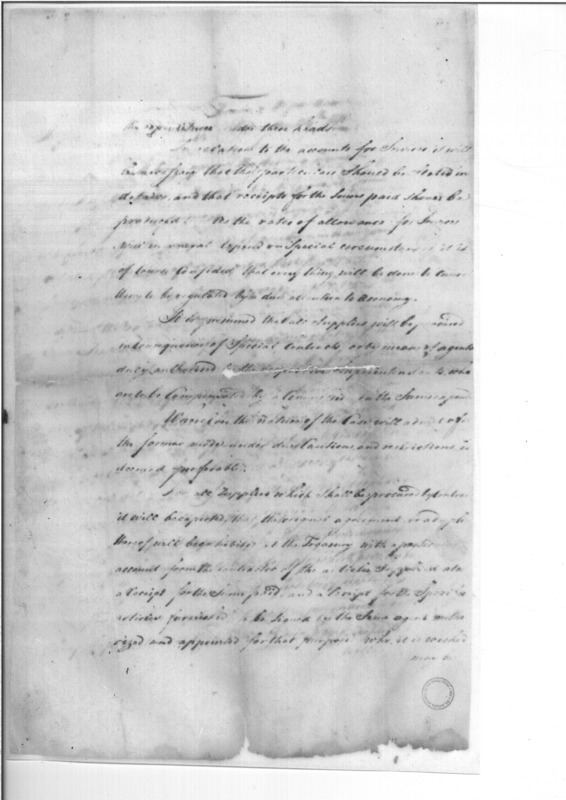 the expenditures under these heads.
In relation to the accounts for Issues it will
be necessary that the particulars should be stated in
detail, and that receipts for the Sums paid should be
produced. As the rates of allowance for
must in general depend on Special circumstances it is
of course confided that every thing will be done to cause
them to be regulated by a due attention to economy.
It is presumed that all supplies will be procured
in consequence of Special contracts, or by means of agents
duly authorized by the respective Superintendants who
are to be Compensated by a Commission on the Sums expended
Wherever the nature of the Case will admit of it
the former mode under due Cautions and restrictions is
deemed preferable.
For all Supplies which shall be procured by contract
it will be expected, that the several agreements
thereof will be exhibited at the Treasury with a particular
account from the contractor of the articles Supplied also
a receipt for the Sums paid, and a receipt for the Specific
articles furnished to be signed by the Same agent autho
rized and appointed for that purpose who, it is wished
may be